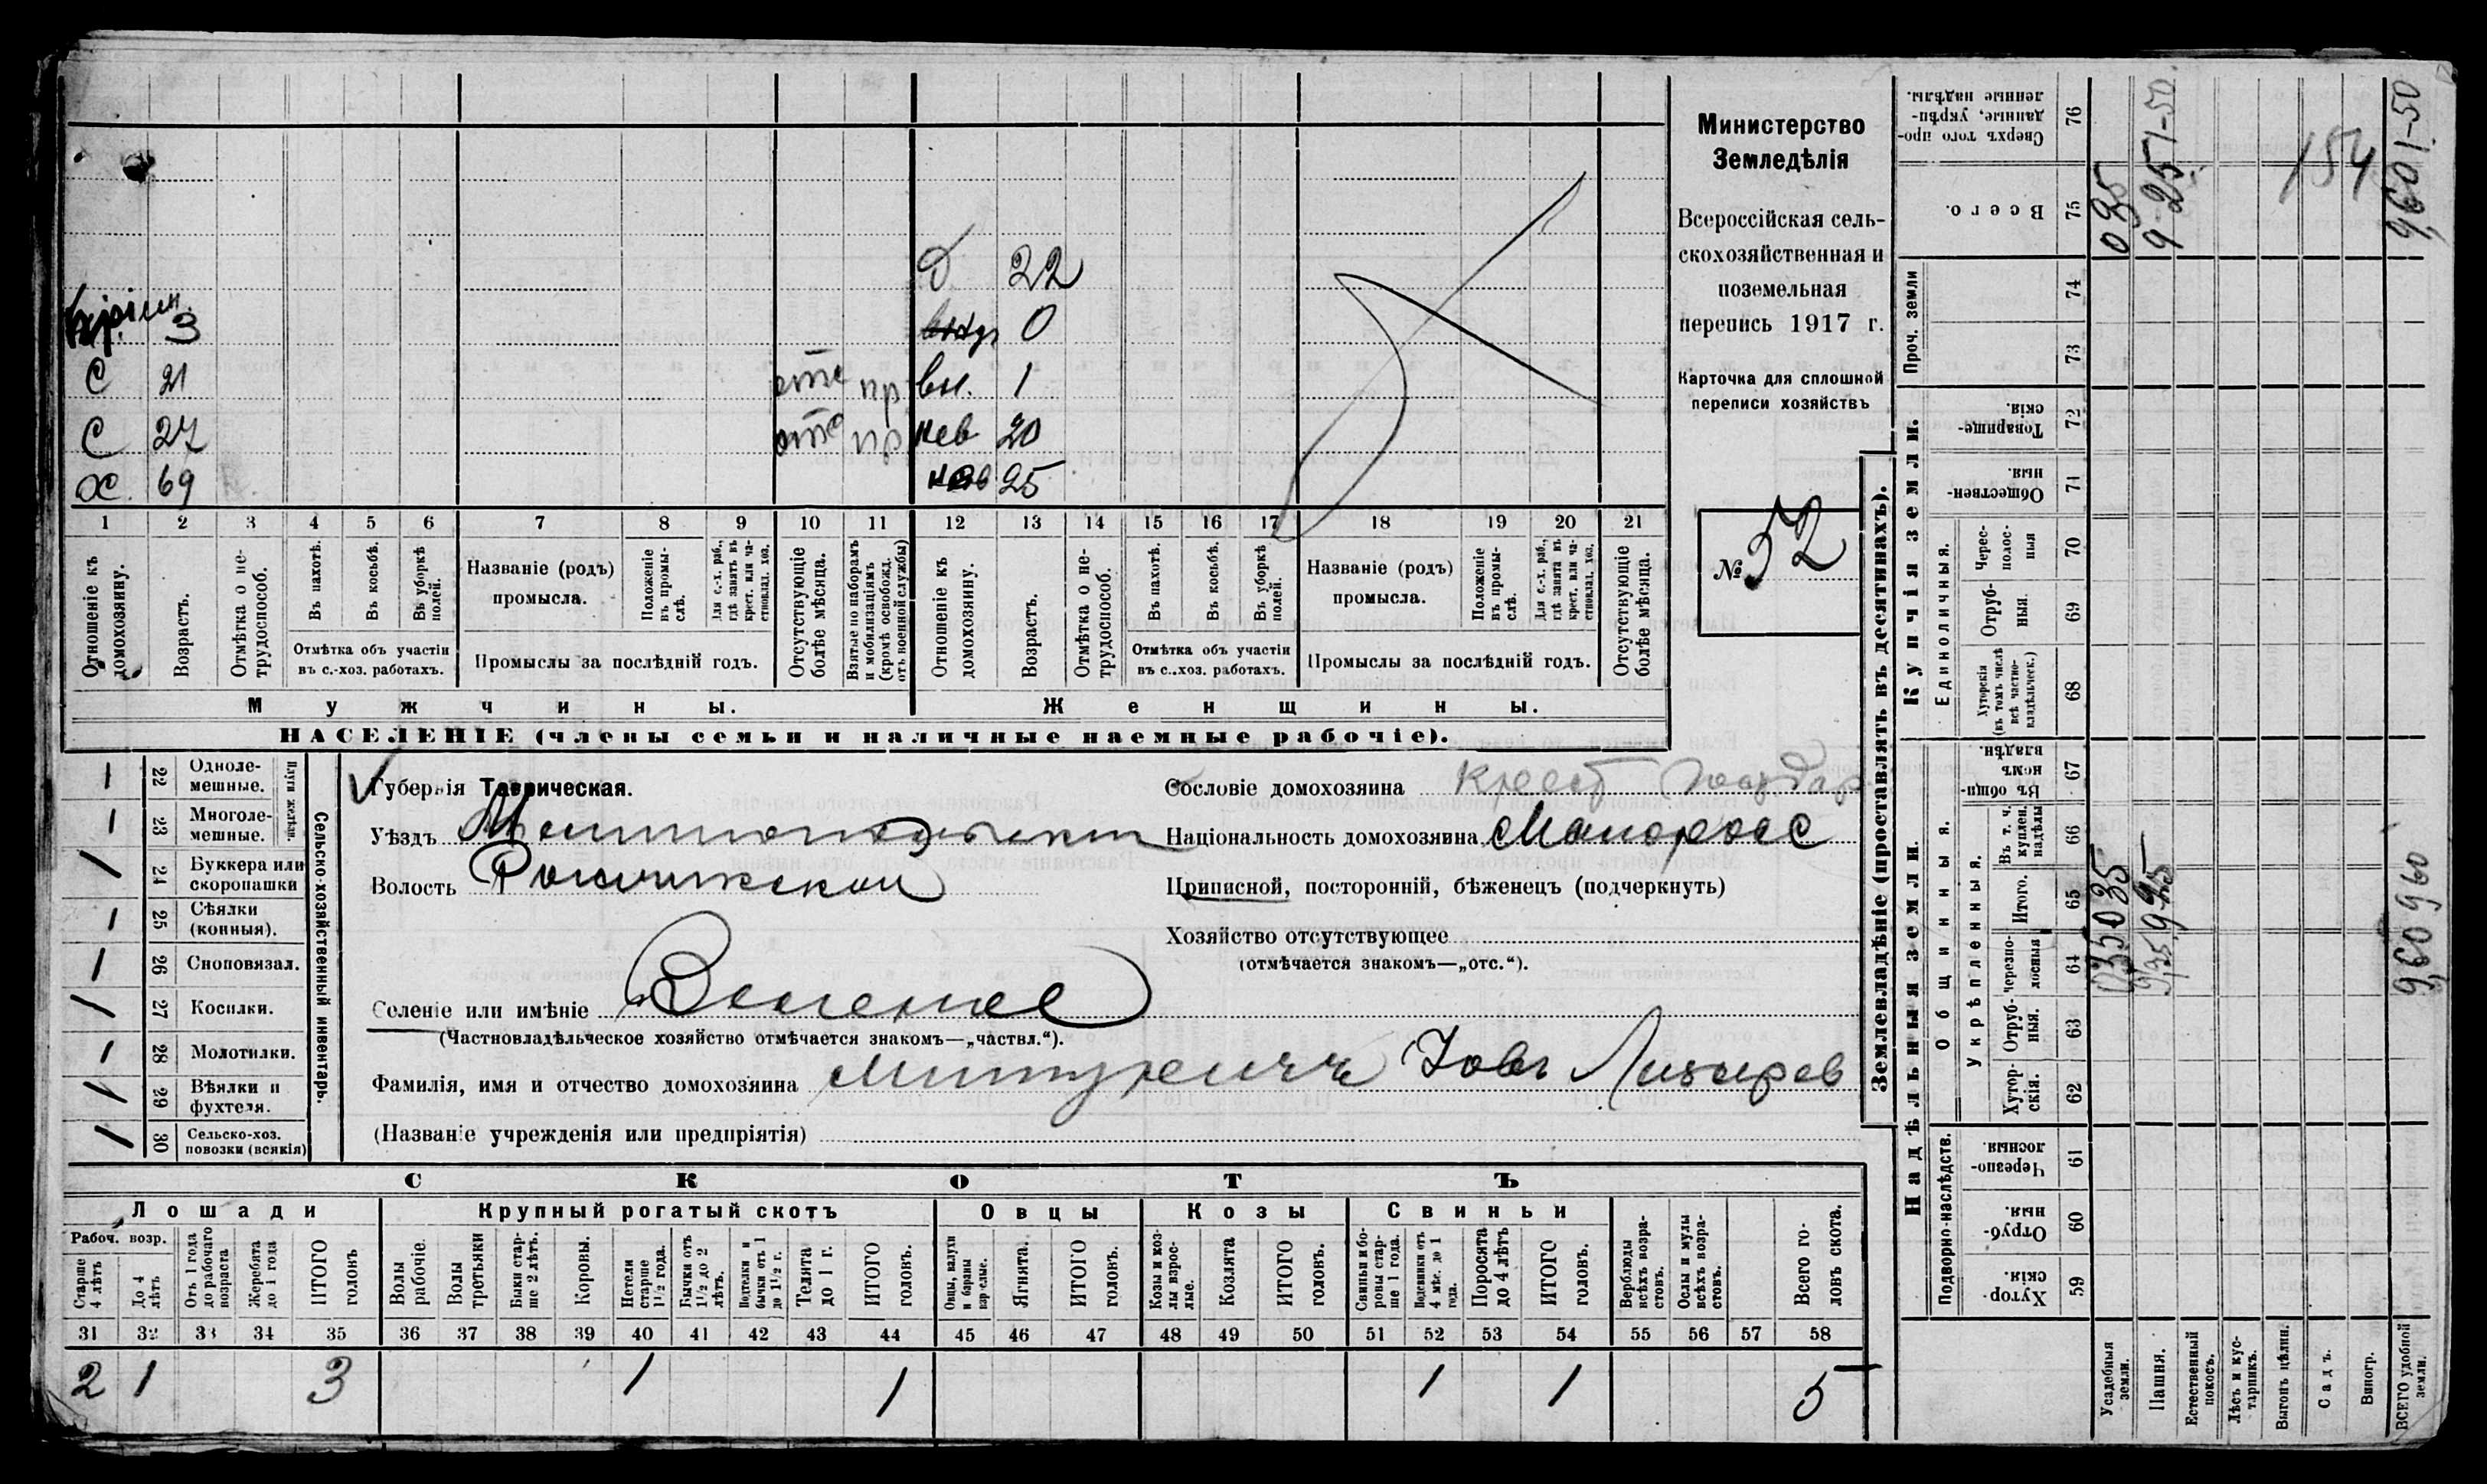 Министерство
Земледѣлія
Всероссійская сель-
скохозяйственная и
поземельная
перепись 1917 г.
Карточка для сплошной
переписи хозяйствъ
№ 52
д 22
3 0
С 21 отс пр вн. 1
С 27 отс пр нев 20
х. 69 нев 25
1 2 3 4 5 6 7 8 9 10 11 12 13 14 15 16 17 18 19 20 21
Отношеніе къ домохозяину.
Возрастъ.
Отмѣтка о не-трудоспособ.
Въ пахотѣ.
Въ косьбѣ.
Въ уборкѣ полей.
Отмѣтка объ участіи въ с.-хоз. работахъ.
Названіе (родъ) промысла.
Положеніе въ промы-слѣ.
Для с.-х. раб., гдѣ занятъ въ крест. или ча-стновлад. хоз.
Промыслы за послѣдній годъ.
Отсутствующіе болѣе мѣсяца.
Взятые по наборамъ и мобилизаціямъ (кромѣ освобожд. отъ военной службы)
Отношеніе къ домохозяину.
Возрастъ.
Отмѣтка о не-трудоспособ.
Въ пахотѣ.
Въ косьбѣ.
Въ уборкѣ полей.
Отмѣтка объ участіи въ с.-хоз. работахъ.
Названіе (родъ) промысла.
Положеніе въ промы-слѣ.
Для с.-х. раб., гдѣ занята въ крест. или ча-стновлад. хоз.
Промыслы за послѣдній годъ.
Отсутствующіе болѣе мѣсяца.
Мужчины. Женщины.
НАСЕЛЕНІЕ (члены семьи и наличные наемные рабочіе).
1 22 Одноле-мешные.
1 23 Многоле-мешные.
1 24 Буккера или скоропашки
1 25 Сѣялки (конныя).
1 26 Сноповязал.
1 27 Косилки.
1 28 Молотилки.
1 29 Вѣялки и фухтеля.
1 30 Сельско-хоз. повозки (всякія)
Сельско-хозяйственный инвентарь.
Губернія Таврическая.
Уѣздъ Мелитопольскій
Волость
Селеніе или имѣніе
(Частновладѣльческое хозяйство отмѣчается знакомъ—„частвл.“).
Фамилія, имя и отчество домохозяина Іовъ
(Названіе учрежденія или предпріятія)
Сословіе домохозяина крест
Національность домохозяина Малоросс
Приписной, посторонній, бѣженецъ (подчеркнуть)
Хозяйство отсутствующее
(отмѣчается знакомъ—„отс.“).
СКОТЪ
Лошади Крупный рогатый скотъ Овцы Козы Свиньи
Рабоч. возр.
Старше 4 лѣтъ
До 4 лѣтъ
Отъ 1 года до рабочаго возраста
Жеребята до 1 года
ИТОГО головъ
Волы рабочіе.
Волы третьяки
Быки стар-ше 2 лѣтъ.
Коровы.
Нетели старше 1½ года.
Бычки отъ 1½ до 2 лѣтъ.
Подтелки и бычки отъ 1 до 1½ г.
Телята до 1 г.
ИТОГО головъ.
Овцы, валухи и бараны взрослые.
Ягнята.
ИТОГО головъ.
Козы и коз-лы взрос-лые.
Козлята
ИТОГО головъ.
Свиньи и бо-ровы стар-ше 1 года.
Подсвинки отъ 4 мѣс. до 1 года.
Поросята до 4 лѣтъ
ИТОГО головъ.
Верблюды всѣхъ возра-стовъ.
Ослы и мулы всѣхъ возра-стовъ.
Всего го-ловъ скота.
31 32 33 34 35 36 37 38 39 40 41 42 43 44 45 46 47 48 49 50 51 52 53 54 55 56 57 58
2 1 3 1 1 1 1 5
Землевладѣніе (проставлять въ десятинахъ).
Купчія земли.
Проч. земли
Единоличныя.
Сверхъ того про-данные, укрѣп-ленные надѣлы. 76
Всего. 75
74
73
Товарище-скія. 72
Обществен-ныя. 71
Черес-полос-ныя 70
Отруб-ныя. 69
Хуторскія (въ томъ числѣ всѣ частно-владѣльческ.) 68
Надѣльныя земли.
Общинныя.
Укрѣпленныя.
Въ общин-номъ владѣн. 67
Въ т. ч. куплен. надѣлы 66
Итого. 65
Черезпо-лосныя 64
Отруб-ныя. 63
Хутор-скія. 62
Подворно-наслѣдств.
Черезпо-лосныя 61
Отруб-ныя. 60
Хутор-скія 59
Усадебныя земли.
Пашня.
Естественный покосъ.
Лѣсъ и кус-тарникъ.
Выгонъ цѣлин.
Садъ.
Виногр.
ВСЕГО удобной земли.
035
9-25
154